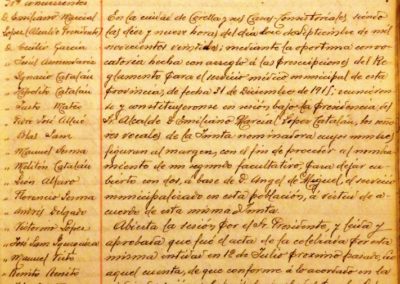 Sres. concurrentes
D. Emiliano Marcial
López (Alcalde Presidente)
D. Cecilio García
" Jesús
" Ignacio Catalán
" Hipólito Catalán
" Justo Mateo
" José Aliaga
" Blas Sanz
" Manuel Serna
" Melitón Catalán
" León Alfaro
" Florencio Serna
" Andrés Delgado
" Victorino López
" José Sanz
" Manuel
" Benito Benito
En la ciudad de Corella, sus Casas Consistoriales, siendo
las diez y nueve horas del día doce de Septiembre de mil
novecientos veintidós, mediante la oportuna convo-
catoria hecha con arreglo a las prescripciones del Re-
glamento para el servicio médico municipal de esta
provincia, de fecha 31 de Diciembre de 1915, reunieron-
se y constituyeronse en sesión, bajo la presidencia del
Sr. Alcalde D. Emiliano Marcial López Catalán, los seño-
res vocales de la Junta nominadora cuyos nombres
figuran al margen, con el fin de proceder al nombra-
miento de un segundo facultativo, para dejar cu-
bierto con dos, á base de D. Angel de Miguel, el servicio
municipalizado en esta población, á virtud de a-
cuerdo de esta misma Junta.
Abierta la sesión por el Sr. Presidente, y leída y
aprobada que fué el acta de la celebrada por esta
misma entidad en 12 de Julio próximo pasado, dió
aquel cuenta, de que conforme á lo acordado en la